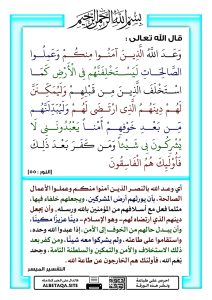 بسم الله الرحمن الرحيم
قال الله تعالى :
وَعَدَ اللَّهُ الَّذِينَ آمَنُوا مِنكُمْ وَعَمِلُوا
الصَّالِحَاتِ لَيَسْتَخْلِفَنَّهُم فِي الْأَرْضِ كَمَا
اسْتَخْلَفَ الَّذِينَ مِن قَبْلِهِمْ وَلَيُمَكِّنَنَّ
لَهُمْ دِينَهُمُ الَّذِي ارْتَضَى لَهُمْ وَلَيُبَدِّلَنَّهُم
مِّن بَعْدِ خَوْفِهِمْ أَمْنًا يَعْبُدُونَنِي لَا
يُشْرِكُونَ بِي شَيْئًا وَمَن كَفَرَ بَعْدَ ذَلِكَ
فَأُوْلَئِكَ هُمُ الْفَاسِقُونَ
[النور : ٥٥]
أي وعد الله بالنصر الذين آمنوا منكم وعملوا الأعمال
الصالحة، بأن يورثهم أرض المشركين، ويجعلهم خلفاء فيها،
مثلما فعل مع أسلافهم من المؤمنين بالله ورسله، وأن يجعل
دينهم الذي ارتضاه لهم -وهو الإسلام- دينًا عزيزًا مكينًا،
وأن يبدل حالهم من الخوف إلى الأمن، إذا عبدوا الله وحده،
واستقاموا على طاعته، ولم يشركوا معه شيئًا، ومن كفر بعد
ذلك الاستخلاف والأمن والتمكين والسلطنة التامة، وجحد
نعم الله، فأولئك هم الخارجون عن طاعة الله.
التفسير الميسر
ALBETAQA.SITE